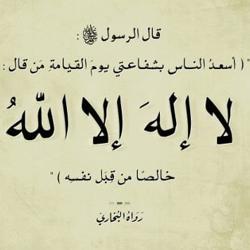 قال الرسول ﷺ :
" ( أسعدُ الناس بشفاعتي يومَ القيامةِ مَن قال :
لا إلهَ إلا اللهُ
خالصًا من قِبَل نفسِه ) "
رَوَاهُ البُخَارِيّ